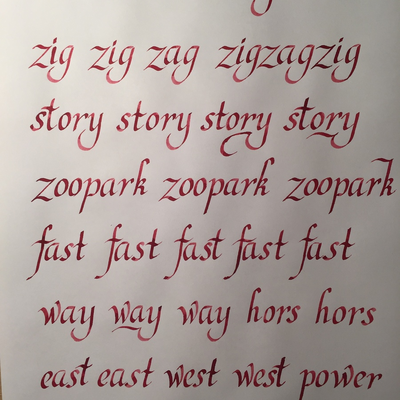 zig zig zag zigzagzig
story story story story
zoopark zoopark zoopark
fast fast fast fast fast
way way way hors hors
east east west west power